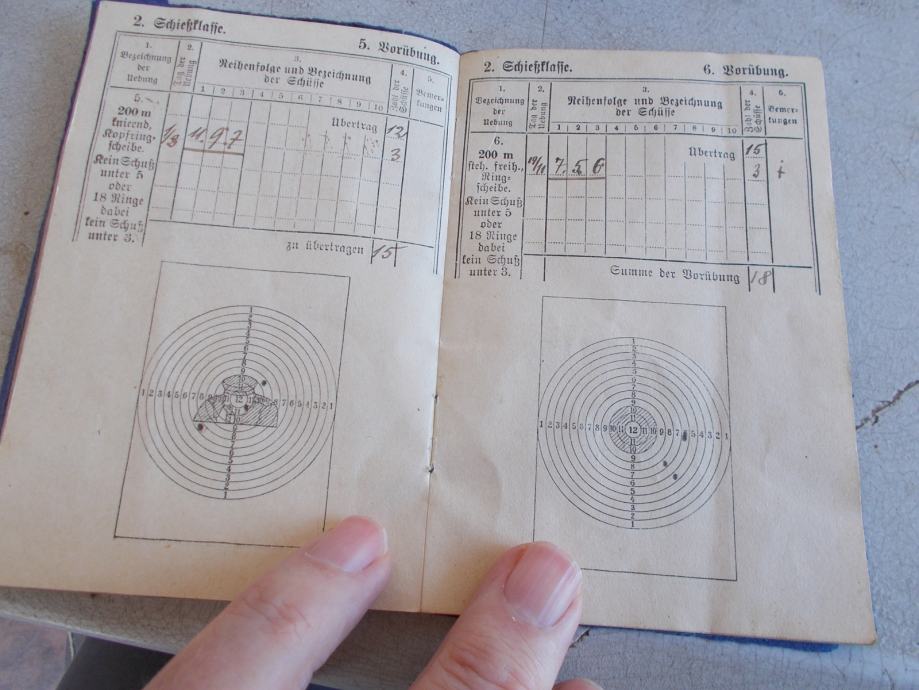 2. Schießklasse.
5. Vorübung.
1. 2. 3. 4. 5.
Bezeichnung der Uebung
Tag der Uebung
Reihenfolge und Bezeichnung der Schüsse
Zahl der Schüsse
Bemerkungen
1 2 3 4 5 6 7 8 9 10
5.
200 m
kniend,
Kopfring-
scheibe.
Kein Schuß
unter 5
oder
18 Ringe
dabei
kein Schuß
unter 3.
Übertrag 12
11. 9. 7 3
zu übertragen 15
1 2 3 4 5 6 7 8
12
7 6 5 4 3 2 1
2. Schießklasse.
6. Vorübung.
1. 2. 3. 4. 5.
Bezeichnung der Uebung
Tag der Uebung
Reihenfolge und Bezeichnung der Schüsse
Zahl der Schüsse
Bemerkungen
1 2 3 4 5 6 7 8 9 10
6.
200 m
steh. freih.,
Ring-
scheibe.
Kein Schuß
unter 5
oder
18 Ringe
dabei
kein Schuß
unter 3.
Übertrag 15
7. 5. 6 3 +
Summe der Vorübung 18
1 2 3 4 5 6 7 8 9 10 11 12 11 10 9 8 7 6 5 4 3 2 1